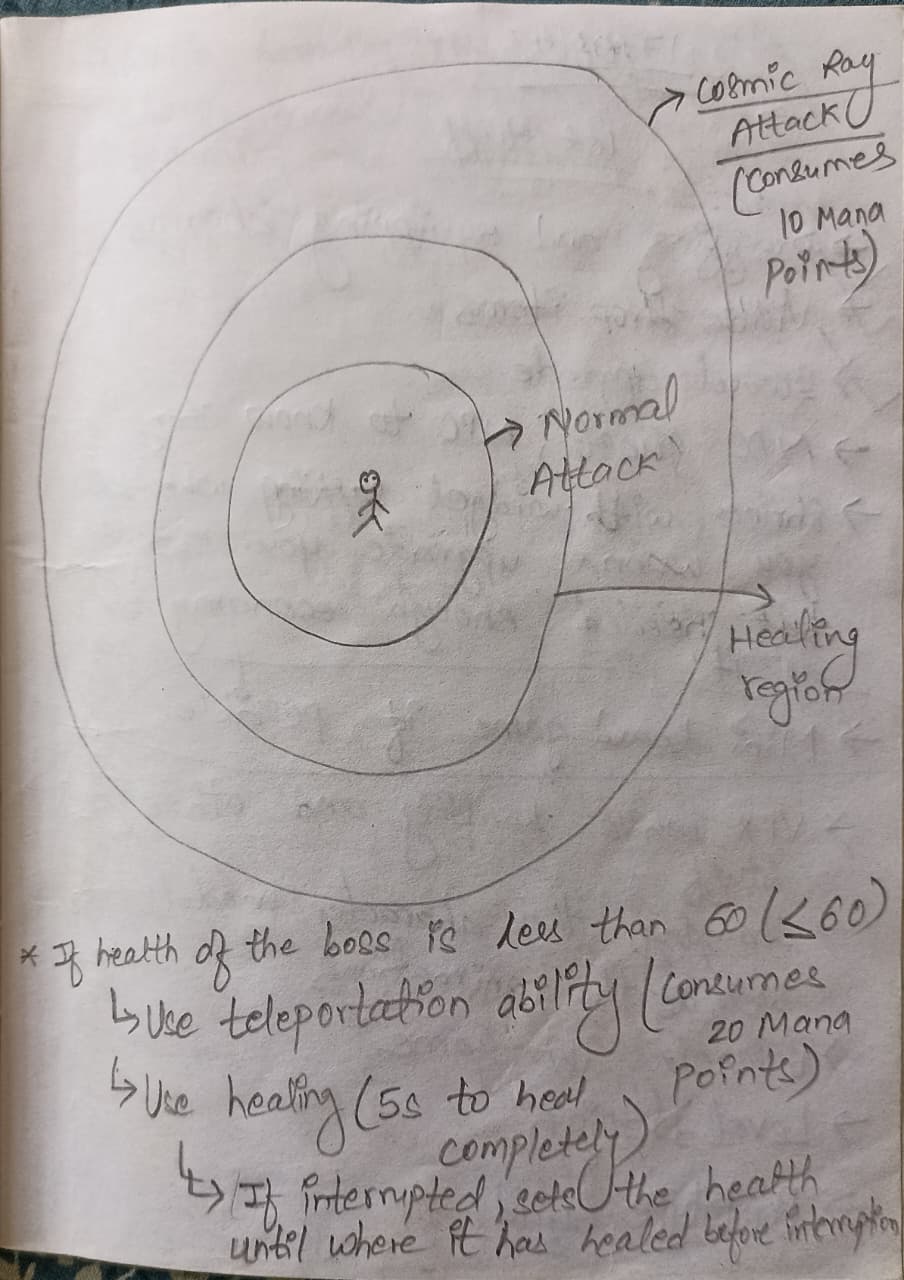 Cosmic Ray
Attack
(consumes
10 Mana
points)
Normal
Attack
Healing
region
* If health of the boss is less than 60 (≤60)
↳ Use teleportation ability (consumes
20 Mana
points)
↳ Use healing (5s to heal
completely)
↳ If interrupted, sets the health
until where it has healed before interruption